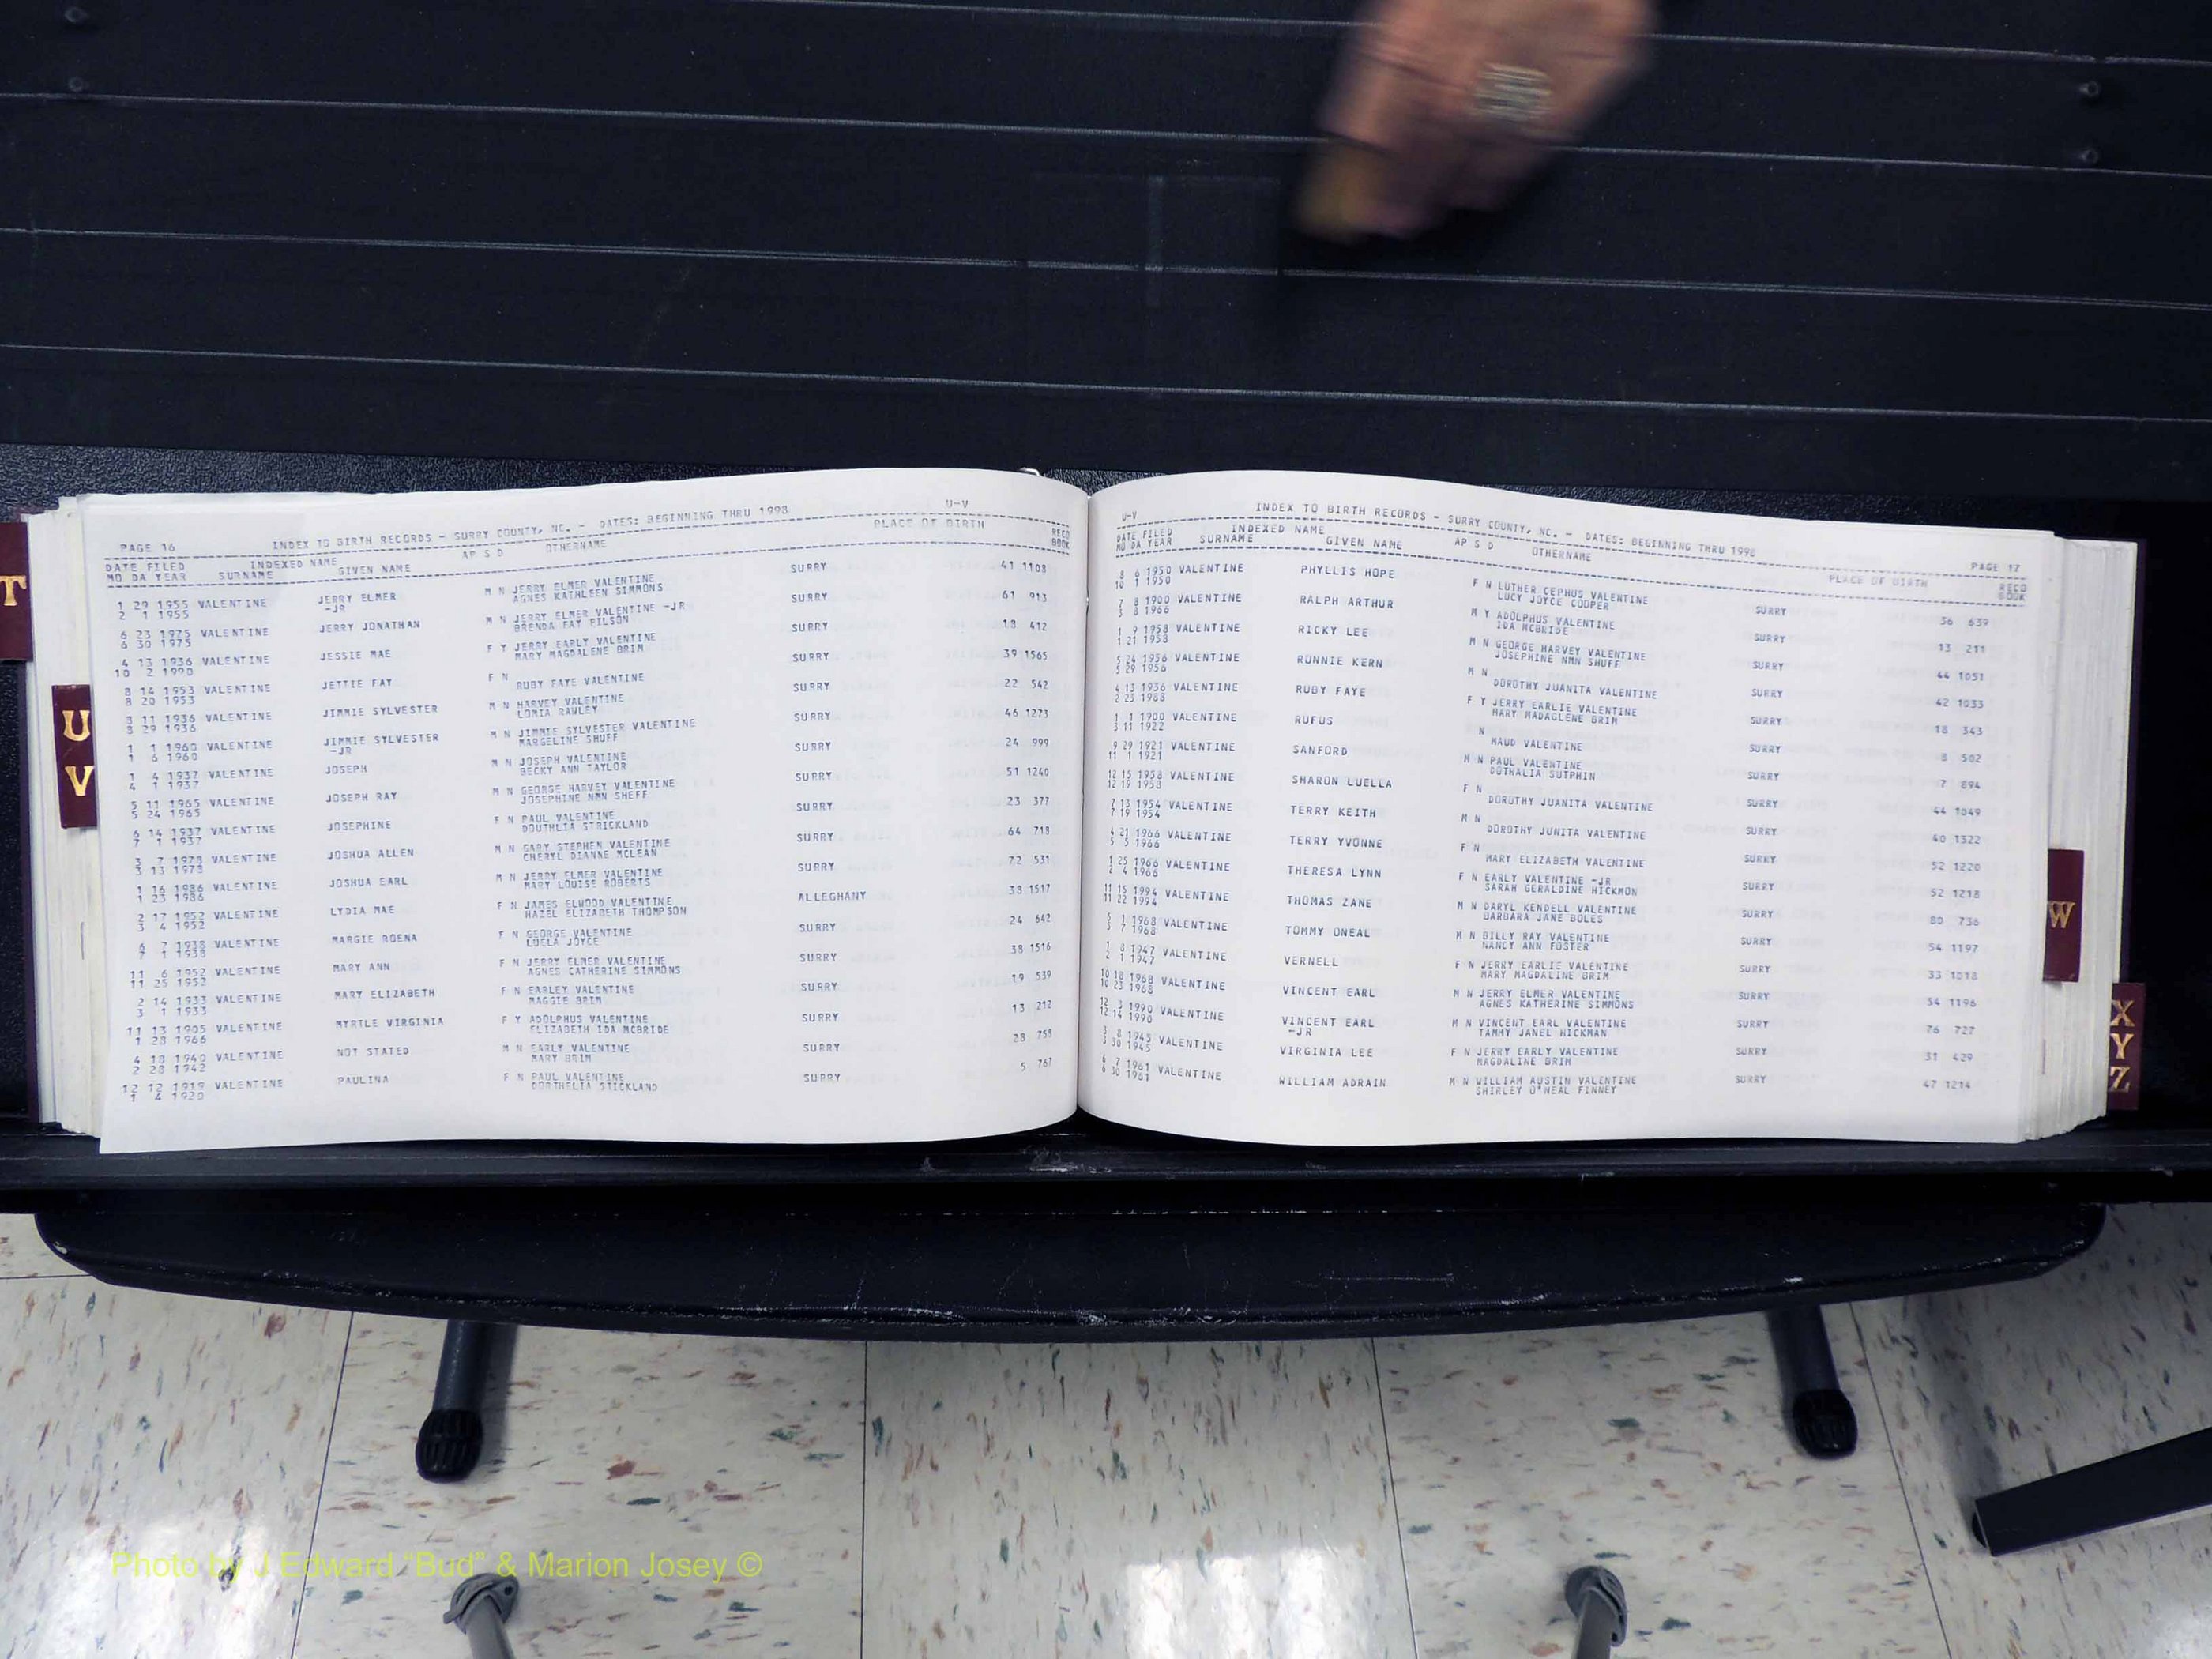 T
U
V
PAGE 16 INDEX TO BIRTH RECORDS - SURRY COUNTY, NC. - DATES: BEGINNING THRU 1998 U-V
DATE FILED INDEXED NAME AP S D OTHERNAME PLACE OF BIRTH RECO
MO DA YEAR SURNAME GIVEN NAME BOOK
1 29 1955 VALENTINE JERRY ELMER M N JERRY ELMER VALENTINE SURRY 41 1108
2 1 1955 -JR AGNES KATHLEEN SIMMONS
6 23 1975 VALENTINE JERRY JONATHAN M N JERRY ELMER VALENTINE -JR SURRY 61 913
6 30 1975 BRENDA FAY PILSON
4 13 1936 VALENTINE JESSIE MAE F Y JERRY EARLY VALENTINE SURRY 18 412
10 2 1990 MARY MAGDALENE BRIM
8 14 1953 VALENTINE JETTIE FAY F N SURRY 39 1565
8 20 1953 RUBY FAYE VALENTINE
8 11 1936 VALENTINE JIMMIE SYLVESTER M N HARVEY VALENTINE SURRY 22 542
8 29 1936 LOMIA RAWLEY
1 1 1960 VALENTINE JIMMIE SYLVESTER M N JIMMIE SYLVESTER VALENTINE SURRY 46 1273
1 6 1960 -JR MARGELINE SHUFF
1 4 1937 VALENTINE JOSEPH M N JOSEPH VALENTINE SURRY 24 999
4 1 1937 BECKY ANN TAYLOR
5 11 1965 VALENTINE JOSEPH RAY M N GEORGE HARVEY VALENTINE SURRY 51 1240
5 24 1965 JOSEPHINE NMN SHEFF
6 14 1937 VALENTINE JOSEPHINE F N PAUL VALENTINE SURRY 23 377
7 1 1937 DOUTHLIA STRICKLAND
3 7 1978 VALENTINE JOSHUA ALLEN M N GARY STEPHEN VALENTINE SURRY 64 718
3 13 1978 CHERYL DIANNE MCLEAN
1 16 1986 VALENTINE JOSHUA EARL M N JERRY ELMER VALENTINE SURRY 72 531
1 23 1986 MARY LOUISE ROBERTS
2 17 1952 VALENTINE LYDIA MAE F N JAMES ELWOOD VALENTINE ALLEGHANY 38 1517
3 4 1952 HAZEL ELIZABETH THOMPSON
6 7 1938 VALENTINE MARGIE ROENA F N GEORGE VALENTINE SURRY 24 642
7 1 1938 LUELA JOYCE
11 6 1952 VALENTINE MARY ANN F N JERRY ELMER VALENTINE SURRY 38 1516
11 25 1952 AGNES CATHERINE SIMMONS
2 14 1933 VALENTINE MARY ELIZABETH F N EARLEY VALENTINE SURRY 19 539
3 1 1933 MAGGIE BRIM
11 13 1905 VALENTINE MYRTLE VIRGINIA F Y ADOLPHUS VALENTINE SURRY 13 212
1 28 1966 ELIZABETH IDA MCBRIDE
4 18 1940 VALENTINE NOT STATED M N EARLY VALENTINE SURRY 28 758
2 28 1942 MARY BRIM
12 12 1919 VALENTINE PAULINA F N PAUL VALENTINE SURRY 5 767
1 4 1920 DORTHELIA STICKLAND
U-V INDEX TO BIRTH RECORDS - SURRY COUNTY, NC. - DATES: BEGINNING THRU 1998 PAGE 17
DATE FILED INDEXED NAME AP S D OTHERNAME PLACE OF BIRTH RECO
MO DA YEAR SURNAME GIVEN NAME BOOK
8 6 1950 VALENTINE PHYLLIS HOPE F N LUTHER CEPHUS VALENTINE SURRY 36 639
10 1 1950 LUCY JOYCE COOPER
7 8 1900 VALENTINE RALPH ARTHUR M Y ADOLPHUS VALENTINE SURRY 13 211
3 8 1966 IDA MCBRIDE
1 9 1958 VALENTINE RICKY LEE M N GEORGE HARVEY VALENTINE SURRY 44 1051
1 21 1958 JOSEPHINE NMN SHUFF
5 24 1956 VALENTINE RONNIE KERN M N SURRY 42 1033
5 29 1956 DOROTHY JUANITA VALENTINE
4 13 1936 VALENTINE RUBY FAYE F Y JERRY EARLIE VALENTINE SURRY 18 343
2 23 1988 MARY MADAGLENE BRIM
1 1 1900 VALENTINE RUFUS N SURRY 8 502
3 11 1922 MAUD VALENTINE
9 29 1921 VALENTINE SANFORD M N PAUL VALENTINE SURRY 7 894
11 1 1921 DOTHALIA SUTPHIN
12 15 1958 VALENTINE SHARON LUELLA F N SURRY 44 1049
12 19 1958 DOROTHY JUANITA VALENTINE
7 13 1954 VALENTINE TERRY KEITH M N SURRY 40 1322
7 19 1954 DOROTHY JUNITA VALENTINE
4 21 1966 VALENTINE TERRY YVONNE F N SURRY 52 1220
5 5 1966 MARY ELIZABETH VALENTINE
1 25 1966 VALENTINE THERESA LYNN F N EARLY VALENTINE -JR SURRY 52 1218
2 4 1966 SARAH GERALDINE HICKMON
11 15 1994 VALENTINE THOMAS ZANE M N DARYL KENDELL VALENTINE SURRY 80 736
11 22 1994 BARBARA JANE BOLES
5 1 1968 VALENTINE TOMMY ONEAL M N BILLY RAY VALENTINE SURRY 54 1197
5 7 1968 NANCY ANN FOSTER
1 8 1947 VALENTINE VERNELL F N JERRY EARLIE VALENTINE SURRY 33 1018
2 1 1947 MARY MAGDALINE BRIM
10 18 1968 VALENTINE VINCENT EARL M N JERRY ELMER VALENTINE SURRY 54 1196
10 23 1968 AGNES KATHERINE SIMMONS
12 3 1990 VALENTINE VINCENT EARL M N VINCENT EARL VALENTINE SURRY 76 727
12 14 1990 -JR TAMMY JANEL HICKMAN
3 8 1945 VALENTINE VIRGINIA LEE F N JERRY EARLY VALENTINE SURRY 31 429
3 30 1945 MAGDALINE BRIM
6 7 1961 VALENTINE WILLIAM ADRAIN M N WILLIAM AUSTIN VALENTINE SURRY 47 1214
6 30 1961 SHIRLEY O'NEAL FINNEY
W
X
Y
Z
Photo by J Edward "Bud" & Marion Josey ©